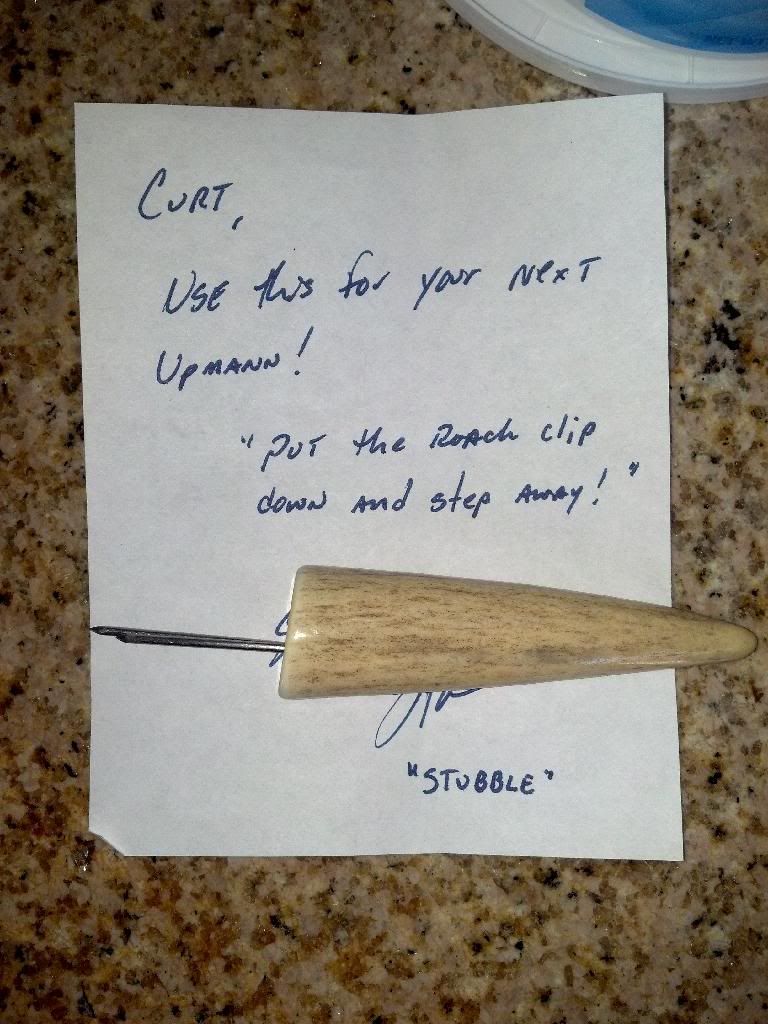 Curt,
Use this for your next
Upmann!
"Put the Roach clip
down and step away!"
"STUBBLE"